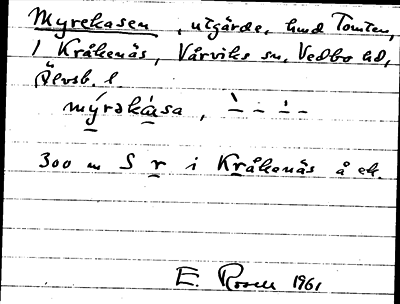 Myrekasen, utgärde, hmd Tomten,
1 Kråkenäs, Vårviks sn, Vedbo hd,
Älvsb. l.
mýrəkàsa,
300 m S r i Kråkenäs å ek.
E. Rosell 1961